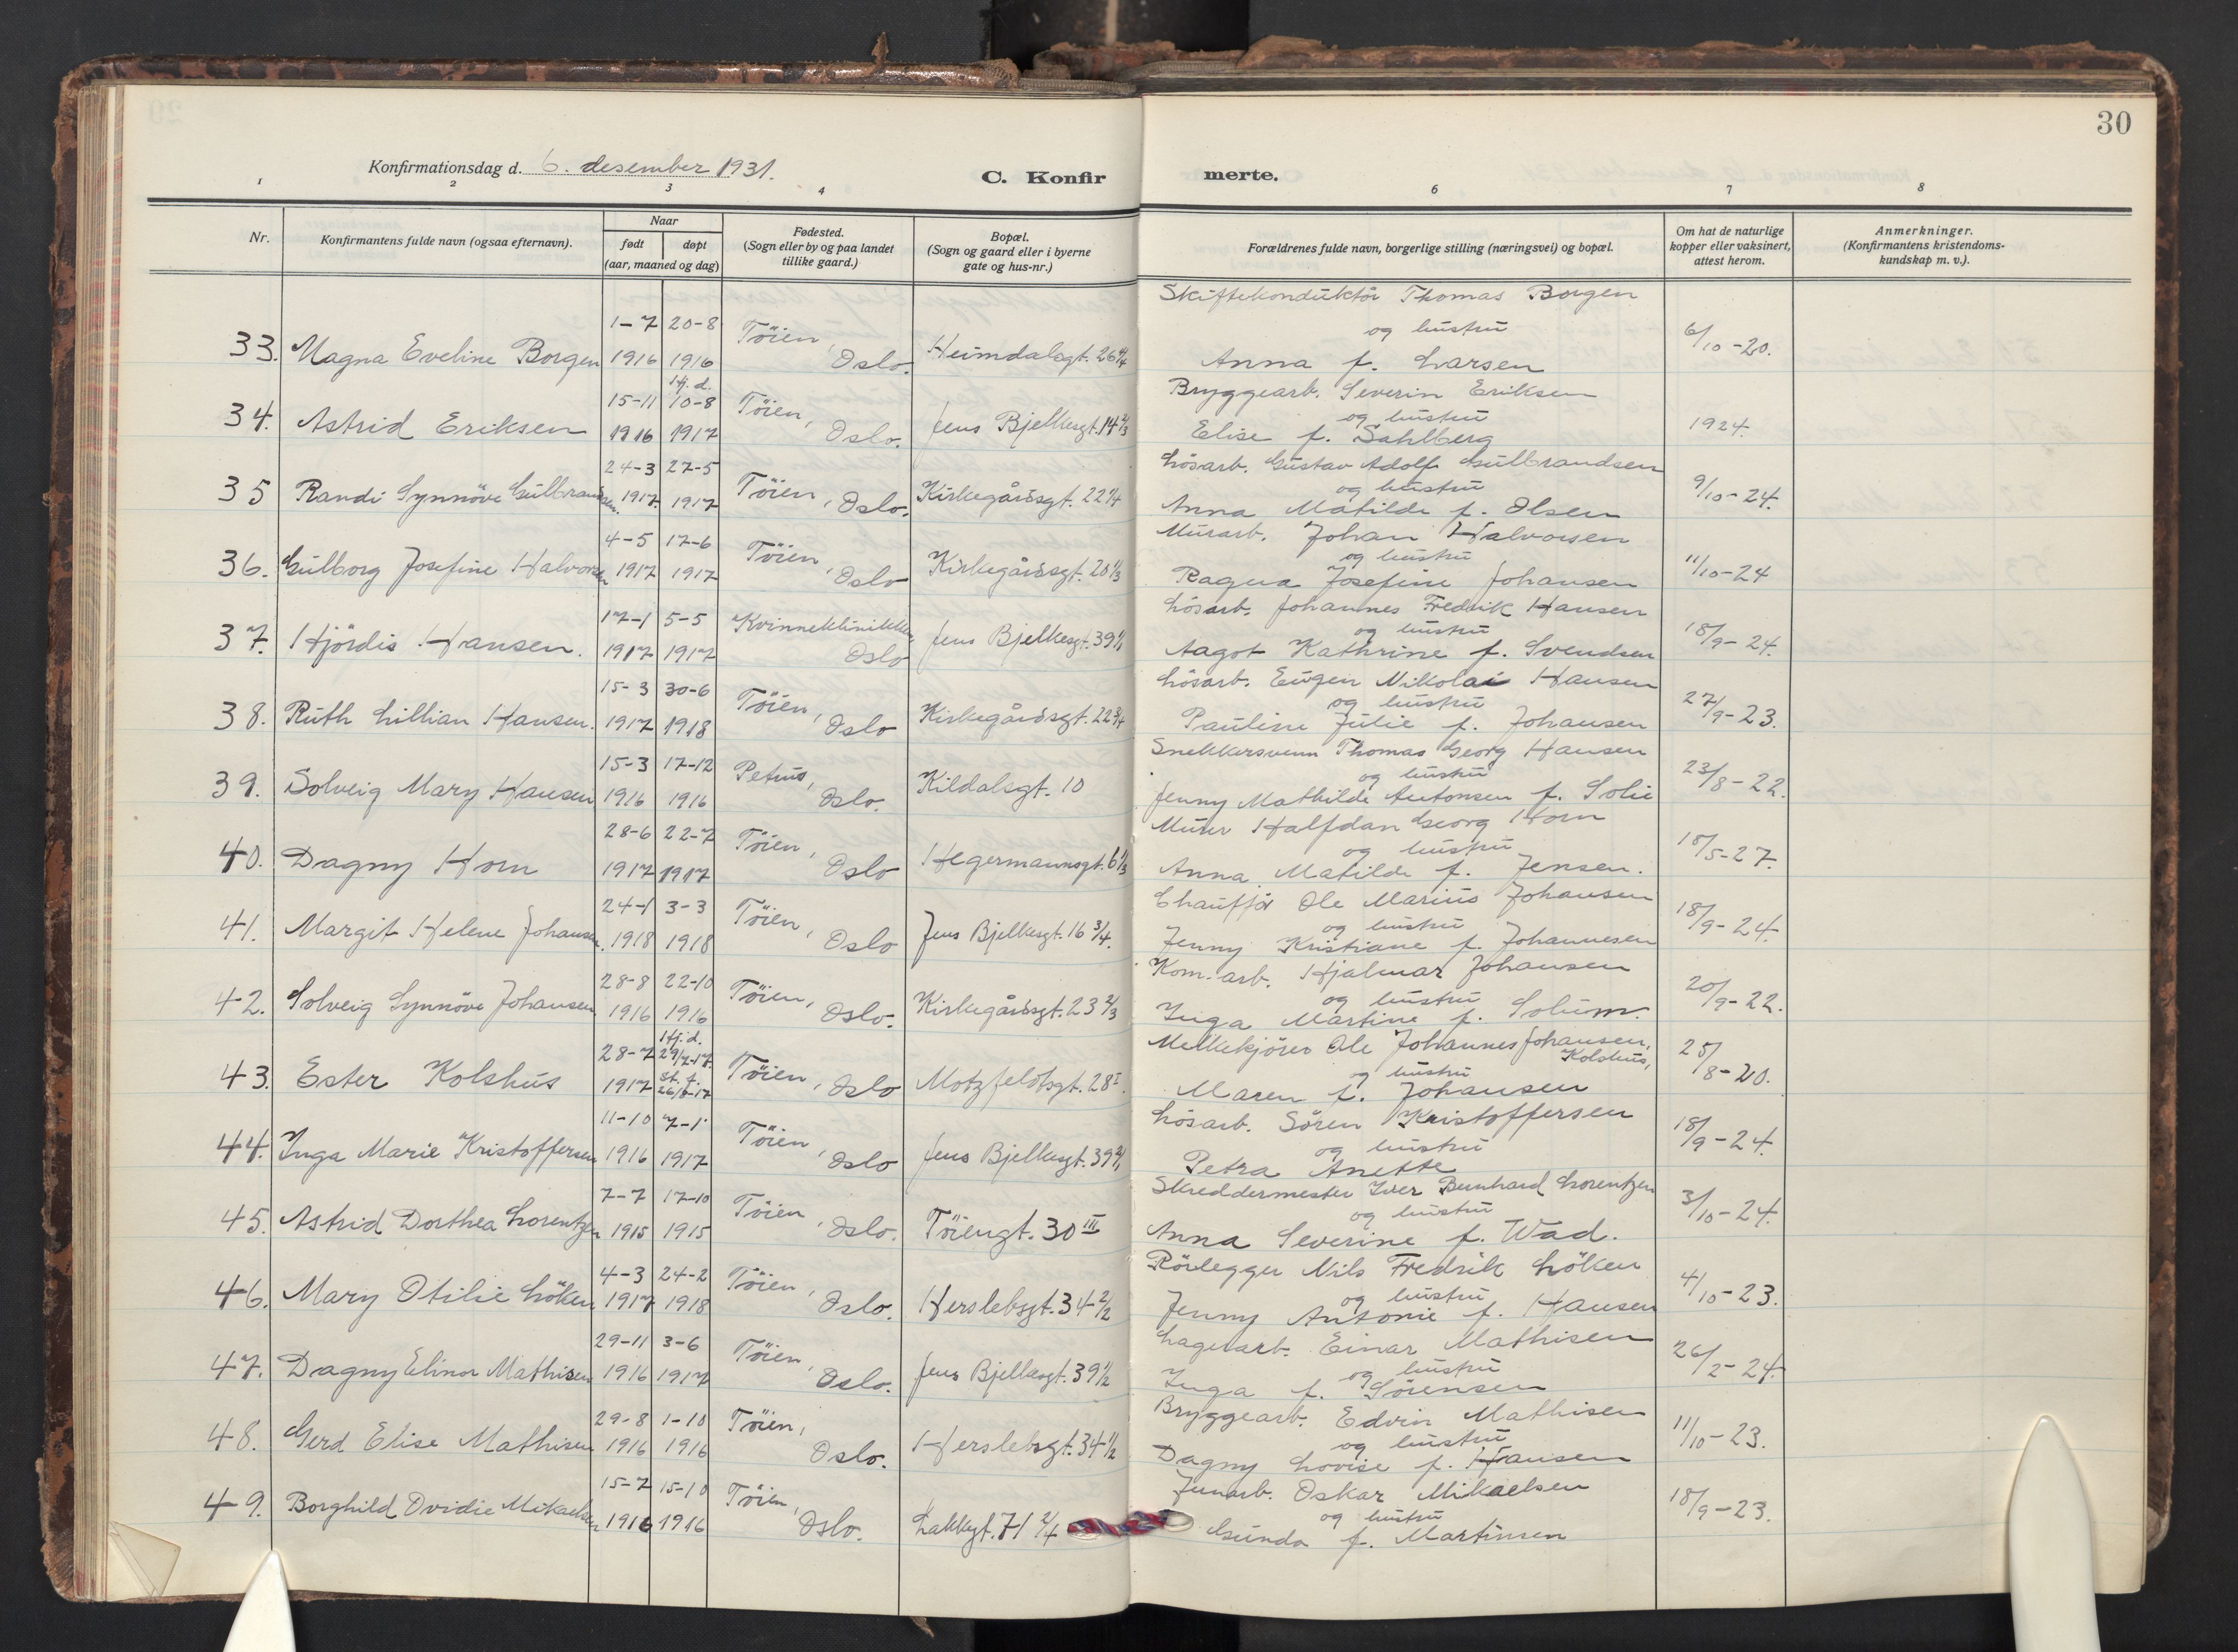 30
Konfirmationsdag d. 6. desember 1931.
C. Konfir merte.
1 2 3 4 6 7 8
Nr.
Konfirmantens fulde navn (ogsaa efternavn).
Naar
født døpt
(aar, maaned og dag)
Fødested.
(Sogn eller by og paa landet
tillike gaard.)
Bopæl.
(Sogn og gaard eller i byerne
gate og hus-nr.)
Forældrenes fulde navn, borgerlige stilling (næringsvei) og bopæl.
Om hat de naturlige
kopper eller vaksinert,
attest herom.
Anmerkninger.
(Konfirmantens kristendoms-
kundskap m. v.).
Skiftekonduktör Thomas Borgen
1-7 20-8 Töien, og hustru 6/10-20.
33. Magna Eveline Borgen 1916 1916 Oslo. Heimdalsgt. 26 4/4 Anna f. Larsen
Hj. d.
15-11 10-8 Töien, Bryggearb. Severin Eriksen
og hustru
34. Astrid Eriksen 1916 1917 Oslo. Jens Bjelkesgt. 14 2/3 Elise f. Sahlberg 1924.
24-3 27-5 Lösarb. Gustav Adolf Gulbrandsen
og hustru 9/10-24.
35 Randi Synnöve Gulbrandsen. 1917. 1917 Töien, Oslo. Kirkegårdsgt. 22 1/4 Anna Matilde f. Olsen
4-5 17-6 Töien, Murarb. Johan Halvorsen
og hustru 11/10-24
36. Gulborg Josefine Halvorsen 1917 1917 Oslo Kirkegårdsgt. 20 1/3 Ragna Josefine Johansen
17-1 5-5 Kvinneklinikken Lösarb. Johannes Fredrik Hansen
og hustru 18/9-24.
37. Hjördis Hansen. 1917 1917 Oslo Jens Bjelkesgt. 39 1/1 Aagot Kathrine f. Svendsen
15-3 30-6 Töien, Lösarb. Eugen Nikolai Hansen
og hustru 27/9-23.
38. Ruth Lillian Hansen. 1917 1918 Oslo Kirkegårdsgt. 22 3/4 Pauline Julie f. Johansen
15-3 17-12 Petrus, Snekkersvenn Thomas Georg Hansen
og hustru 23/8-22.
39. Solveig Mary Hansen 1916 1916 Oslo. Kildalsgt. 10 Jenny Mathilde Antonsen f. Solie
28-6 22-7 Töien, Murer Halfdan Georg Horn
og hustru 18/5-27.
40. Dagny Horn 1917 1917 Oslo Hegermannsgt. 6 1/3 Anna Matilde f. Jensen.
24-1 3-3 Töien, Chauffør Ole Marius Johansen
og hustru 18/9-24.
41. Margit Helene Johansen. 1918 1918 Oslo Jens Bjelkesgt. 16 3/4. Jenny Kristiane f. Johannesen
28-8 22-10 Töien, Kom.-arb. Hjalmar Johansen
og hustru 20/9-22.
42. Solveig Synnöve Johansen 1916 1916 Oslo. Kirkegårdsgt. 23 2/3 Inga Martine f. Solum.
Hj. d.
28-7 29/7-17. Melkekjörer Ole Johannes Johansen,
Kolshus,
st. f. og hustru 25/8-20.
43. Ester Kolshus 1917 26/8-17 Töien, Oslo Motzfeldtsgt. 28 I. Maren f. Johansen
11-10 7-1 Töien, Lösarb. Sören Kristoffersen
og hustru 18/9-24.
44. Inga Marie Kristoffersen 1916 1917 Oslo Jens Bjelkesgt. 39 4/1 Petra Anette
7-7 17-10 Töien, Skreddermester Iver Bernhard Lorentzen
og hustru 3/10-24.
45. Astrid Dorthea Lorentzen 1915 1915 Oslo. Töiengt. 30 III Anna Severine f. Wad.
4-3 24-2 Töien, Rörlegger Nils Fredrik Löken
og hustru 4/10-23.
46. Mary Otilie Löken 1917 1918 Oslo. Herslebsgt. 34 2/2 Jenny Antonie f. Hansen
29-11 3-6 Töien, Lagerarb. Einar Mathisen
og hustru 26/2-24.
47. Dagny Elinor Mathisen 1916 1917 Oslo. Jens Bjelkesgt. 39 1/2 Inga f. Sörensen
29-8 1-10 Töien, Bryggearb. Edvin Mathisen
og hustru 11/10-23.
48. Gerd Elise Mathisen 1916 1916 Oslo. Herslebsgt. 34 1/2 Dagny Lovise f. Hansen
15-7 15-10 Töien, Jernarb. Oskar Mikaelsen
og hustru 18/9-23.
49. Borghild Ovidie Mikaelsen 1916 1916 Oslo. Lakkegt. 71 2/4 Gunda f. Martinsen